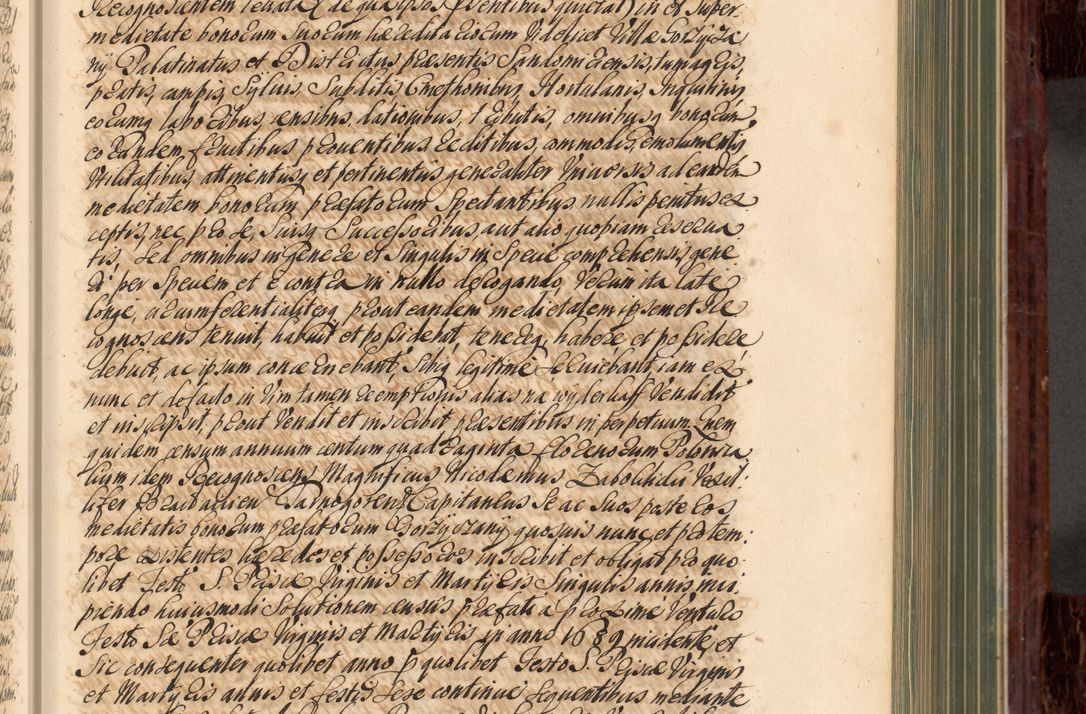 Recognoscentem levata (de qua ipsos solventibus quietat) in et super
medietate bonorum suorum hæreditariorum videlicet Villæ Gorzycza,
nÿ Palatinatus et Districtus præsentis Sandomiriensis, in agris,
pratis, campis, Sylvis, Subditis Cmethonibus, Hortulanis, Inquilinis,
eorumq laboribus, censibus, dationibus, tributis, omnibusq bonorum
eorundem fructibus proventibus redditibus, commodis, emolumentis
utilitatibus, attinentiis, et pertinentiis generaliter Universis ad eandem
medietatem bonorum præfatorum Spectantibus, nullis penitus ex-
ceptis, nec pro se, suisq Successoribus aut alio quopiam reserva
tis, sed omnibus in genere et singulis in specie comprehensis, gene
ri per speciem et e contra in nullo derogando, verum ita late
longe, circumferentialiterq prout eandem medietatem ipsemet Re
cognoscens tenuit, habuit et possidebat, tenereq habere et possidere
debuit, ac ipsum concernebant, sibiq legitime serviebant, iam ex
nunc et de facto in vim tamen reemptionis alias na wÿderkaff vendidit
et inscripsit, prout vendit et inscribit præsentibus in perpetuum. Quem
quidem censum annuum centum quadraginta florenorum Polonica
lium idem Recognoscens Magnificus Nicodemus Zabokłicki Vexil:
lifer Tarnogorens Capitaneus se ac suos post se eos
medietatis bonorum præfatorum Gorzyczanÿ quosvis nunc et pro tem:
pore existentes hæredes et possessores inscribit et obligat pro quo-
libet Festo S. Priscæ Virginis et Martyris singulis annis, inci
piendo huiusmodi solutionem censûs præfati a proxime venturo
Festo Sæ Priscæ Virginis et Martyris in anno 1689 incidente, et
sic consequenter quolibet anno p quolibet Festo S. Priscæ Virginis
et Martyris annis et festis sese continue sequentibus mediante